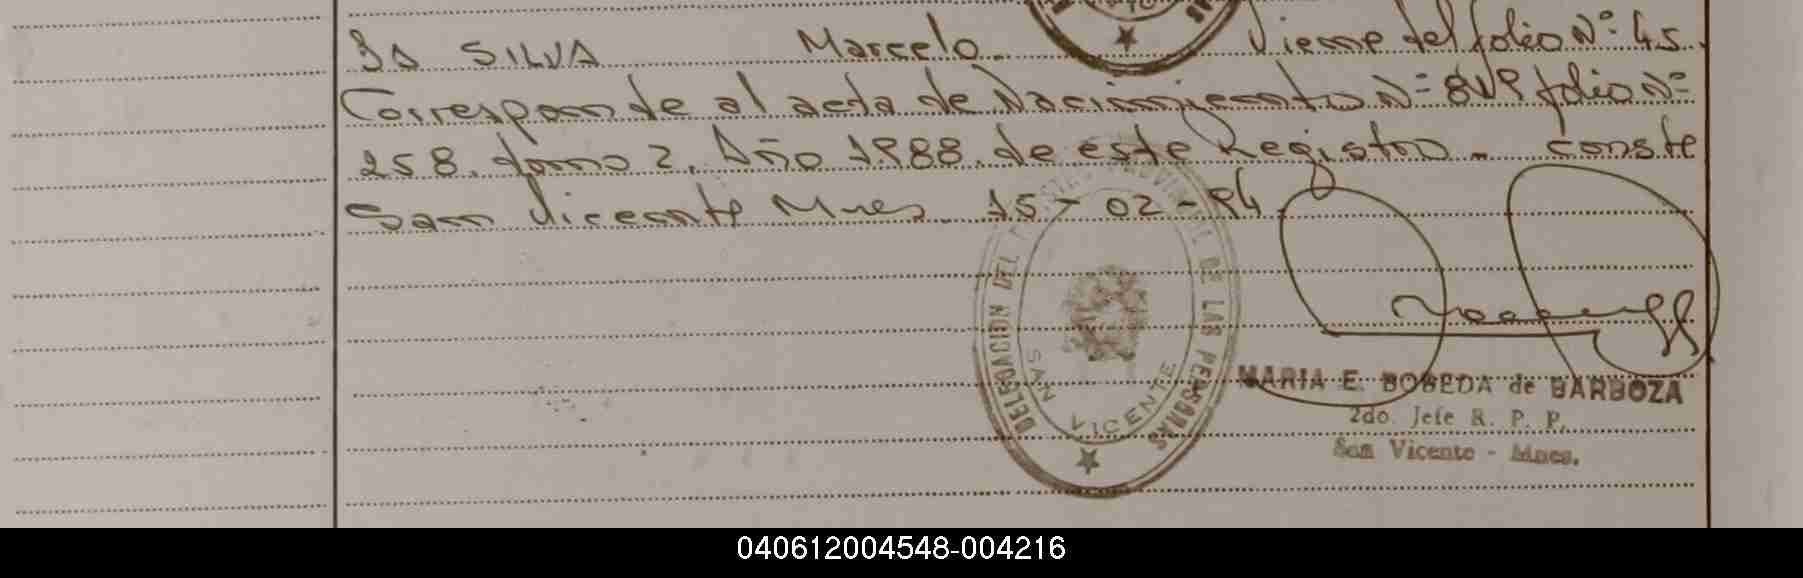 Da SILVA Marcelo.- Viene del folio Nº 45.
Corresponde al acta de Nacimiento Nº folio Nº
258. tomo 2. Año 1988. de este Registro.- Conste
San Vicente Mnes. 15-02-94
DELEGACION DEL REGISTRO PROVINCIAL DE LAS PERSONAS
SAN VICENTE
MARIA E. BOBEDA de BARBOZA
2do. Jefe R. P. P.
San Vicente - Mnes.
040612004548-004216